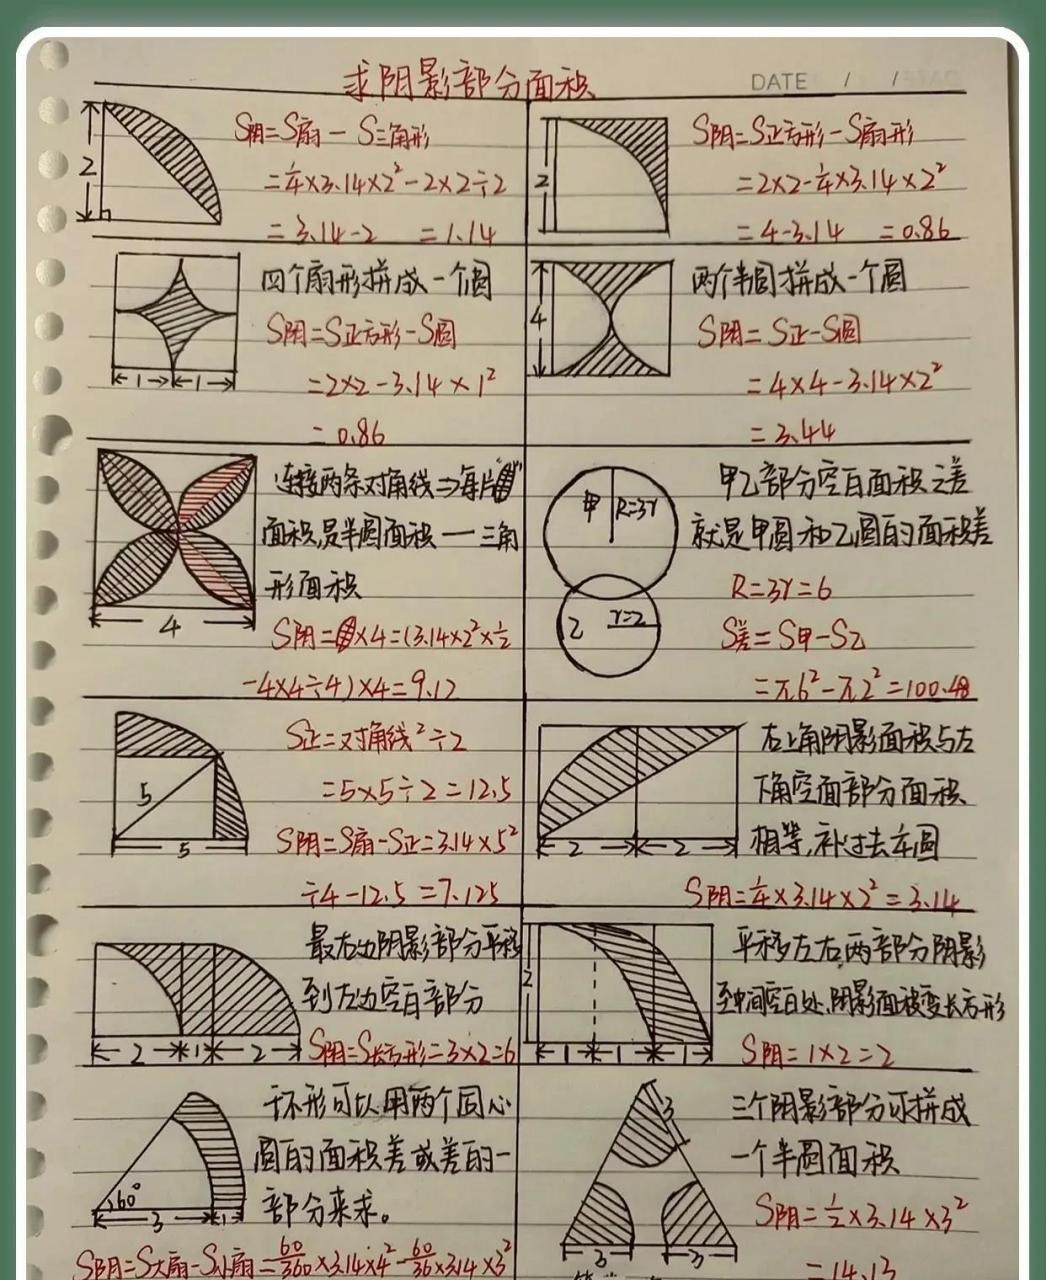 求阴影部分面积
DATE / /
2
S阴=S扇-S三角形
=¼×3.14×2²-2×2÷2
=3.14-2 =1.14
2
S阴=S正方形-S扇形
=2×2-¼×3.14×2²
=4-3.14 =0.86
1 1
四个扇形拼成一个圆
S阴=S正方形-S圆
=2×2-3.14×1²
=0.86
4
两个半圆拼成一个圆
S阴=S正-S圆
=4×4-3.14×2²
=3.44
4
连接两条对角线=>每片
面积是半圆面积一三角
形面积
S阴= ×4=(3.14×2²×½
-4×4÷4)×4=9.12
甲 R=3r
乙 r=2
甲乙部分空白面积之差
就是甲圆和乙圆的面积差
R=3r=6
S差=S甲-S乙
=π6²-π2²=100.48
5
5
S正=对角线²÷2
=5×5÷2=12.5
S阴=S扇-S正=3.14×5²
÷4-12.5=7.125
2 2
右上角阴影面积与左
下角空面部分面积
相等,补过去车圆
S阴=¼×3.14×2²=3.14
2 1 2
最右边阴影部分平移
到左边空白部分
S阴=S长方形=3×2=6
2
1 1 1
平移左右,两部分阴影
至中间空白处,阴影面积变长方形
S阴=1×2=2
60°
3 1
环形可以用两个同心
圆的面积差或差的一
部分来求。
S阴=S大扇-S小扇=60/360×3.14×4²-60/36×3.14×3²
3
3 3
三个阴影部分可拼成
一个半圆面积
S阴=½×3.14×3²
=14.13